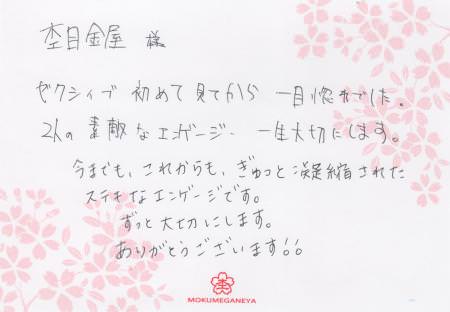 杢目金屋 様
ゼクシィで 初めて 見てから 一目惚れでした。
2人の 素敵なエンゲージ、一生大切にします。
今までも、これからも、ぎゅっと凝縮された
ステキなエンゲージです。
ずっと大切にします。
ありがとうございます!!
MOKUMEGANEYA